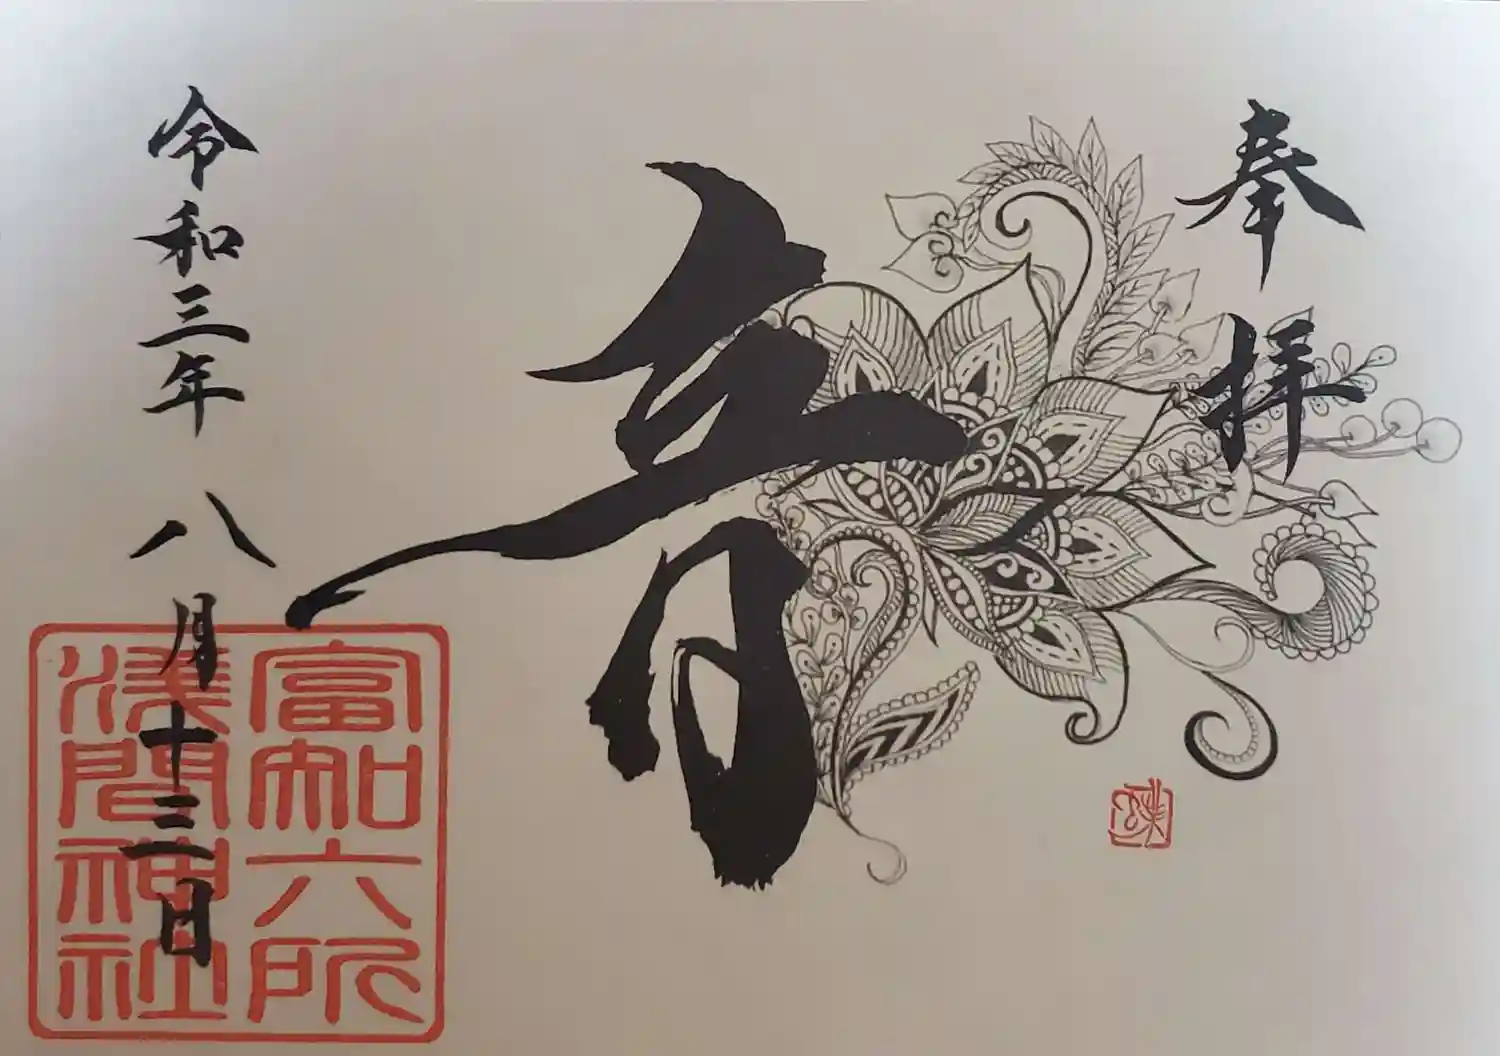 奉拝
音
令和三年八月十三日
富知六所
浅間神社